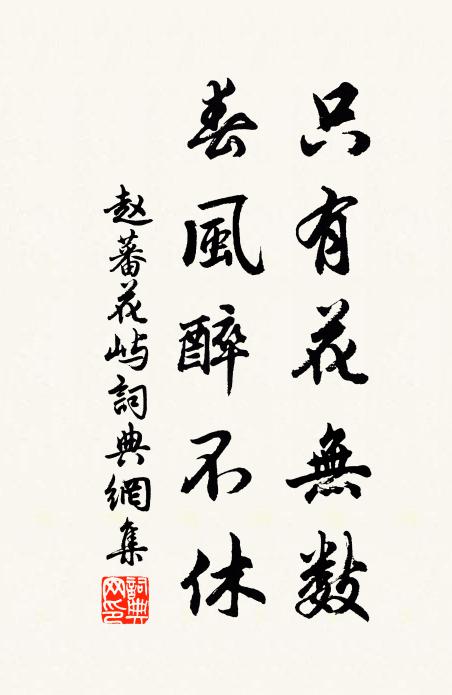 只有花無數
春風醉不休
赵蕃花屿詞典網集
詞典网印